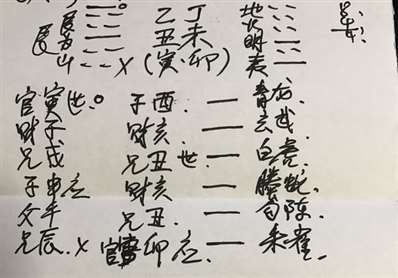 艮 乙 丁 地火
为 丑 未 明
山 × (寅·卯) 夷
官寅世。 子酉. — 青龙.
财子 财亥 — 玄武.
兄戌 兄丑世. — 白虎.
子申应 财亥 — 螣蛇.
父午 兄丑. — 勾陈.
兄辰.× 官卯应. — 朱雀.